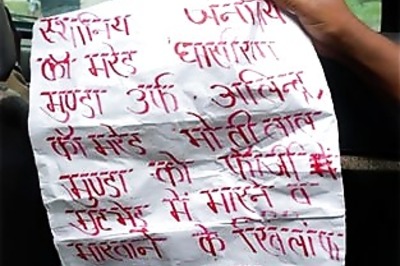 स्थानिय
का मरेड घासीराम
मुण्डा उर्फ
का मरेड मोतीलाल
मुण्डा को फर्जी
मुठभेड में मारने व
मारवाने के खिलाफ